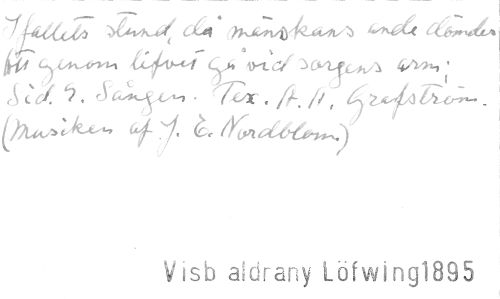 I fallets stund, då mänskans ande dömdes
Att genom lifvet gå vid sorgens arm;
Sid. 9. Sången. Tex. A. A. Grafström.
(Musiken af J. E. Nordblom.)
Visb aldrany Löfwing1895